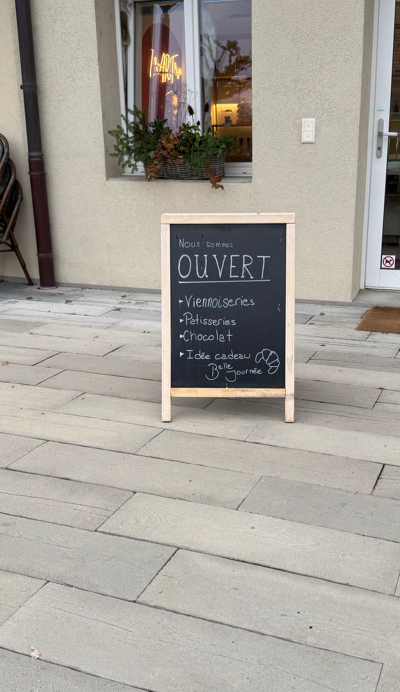 Nous sommes
OUVERT
▸Viennoiseries
▸Patisseries
▸Chocolat
▸Idée cadeau
Belle
Journée